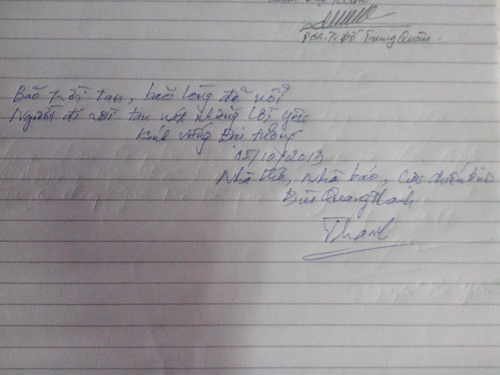 PGS.TS Đỗ Trung Quân
Bão trời tan, bão lòng để nổi
Người đi rồi tan nát những lời yêu
Kính viếng Đại tướng
05/10/2013
Nhà thơ, Nhà báo, Cựu chiến binh
Bùi Quang Thanh
Thanh